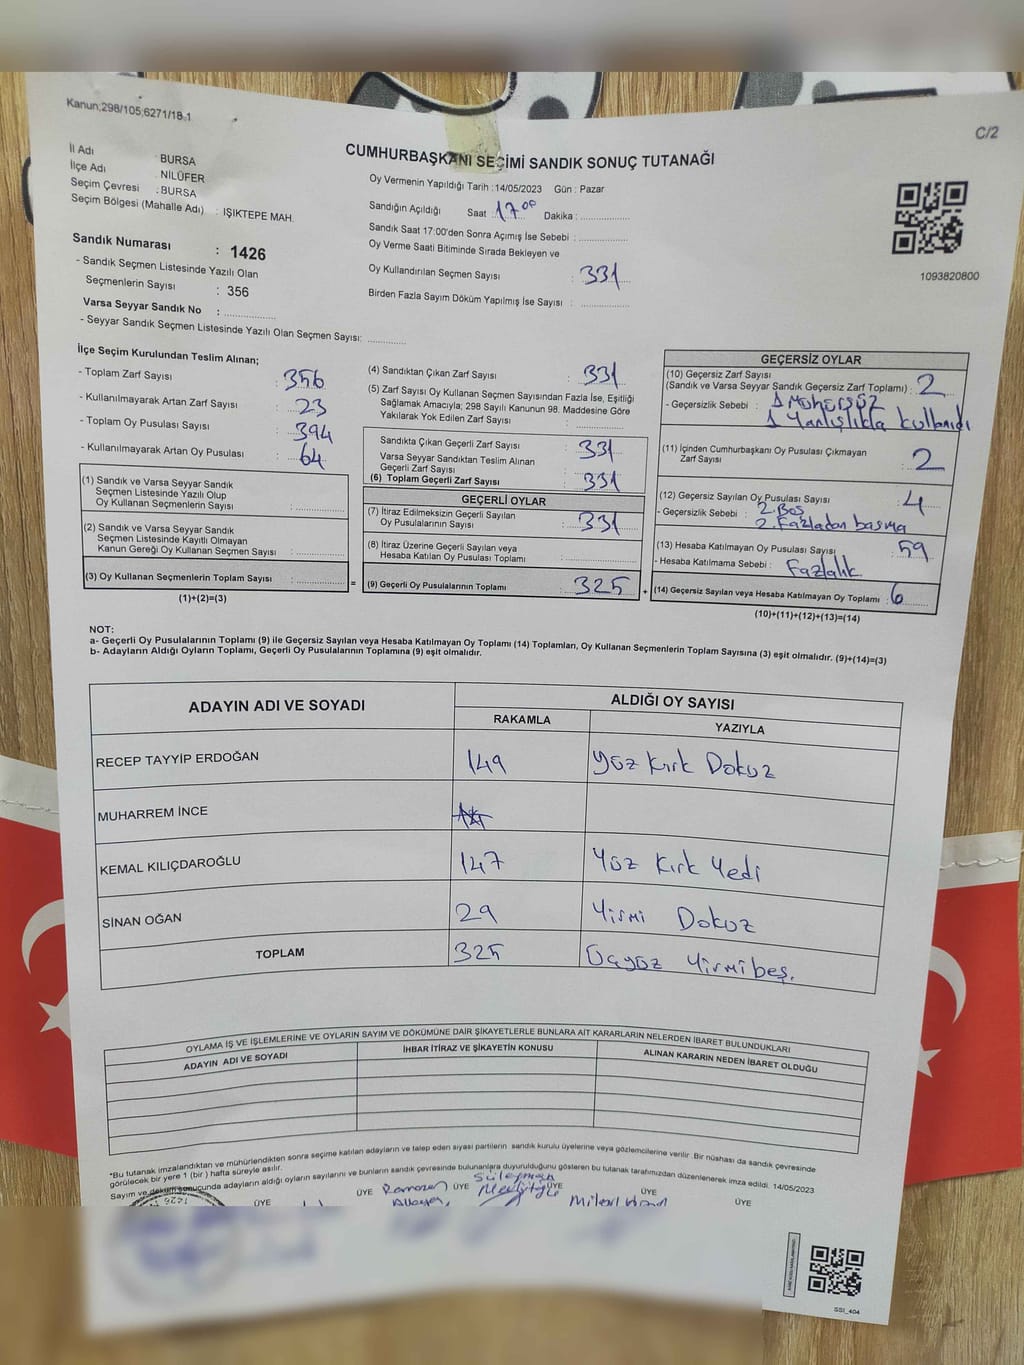 Kanun;298/105;6271/18-1
C/2
CUMHURBAŞKANI SEÇİMİ SANDIK SONUÇ TUTANAĞI
İl Adı : BURSA
İlçe Adı : NİLÜFER
Seçim Çevresi : BURSA
Seçim Bölgesi (Mahalle Adı) : IŞIKTEPE MAH.
Sandık Numarası : 1426
- Sandık Seçmen Listesinde Yazılı Olan
Seçmenlerin Sayısı : 356
Varsa Seyyar Sandık No : ................
- Seyyar Sandık Seçmen Listesinde Yazılı Olan Seçmen Sayısı: ............
Oy Vermenin Yapıldığı Tarih :14/05/2023 Gün : Pazar
Sandığın Açıldığı Saat 17.00 Dakika : ................
Sandık Saat 17:00'den Sonra Açımış İse Sebebi : ................
Oy Verme Saati Bitiminde Sırada Bekleyen ve
Oy Kullandırılan Seçmen Sayısı : 331
Birden Fazla Sayım Döküm Yapılmış İse Sayısı : ................
1093820800
İlçe Seçim Kurulundan Teslim Alınan;
- Toplam Zarf Sayısı : 356
- Kullanılmayarak Artan Zarf Sayısı : 23
- Toplam Oy Pusulası Sayısı : 394
- Kullanılmayarak Artan Oy Pusulası : 64
(1) Sandık ve Varsa Seyyar Sandık
Seçmen Listesinde Yazılı Olup
Oy Kullanan Seçmenlerin Sayısı : ................
(2) Sandık ve Varsa Seyyar Sandık
Seçmen Listesinde Kayıtlı Olmayan
Kanun Gereği Oy Kullanan Seçmen Sayısı : ................
(3) Oy Kullanan Seçmenlerin Toplam Sayısı : ................ =
(1)+(2)=(3)
(4) Sandıktan Çıkan Zarf Sayısı : 331
(5) Zarf Sayısı Oy Kullanan Seçmen Sayısından Fazla İse, Eşitliği
Sağlamak Amacıyla; 298 Sayılı Kanunun 98. Maddesine Göre
Yakılarak Yok Edilen Zarf Sayısı : ................
Sandıkta Çıkan Geçerli Zarf Sayısı : 331
Varsa Seyyar Sandıktan Teslim Alınan
Geçerli Zarf Sayısı
(6) Toplam Geçerli Zarf Sayısı : 331
GEÇERLİ OYLAR
(7) İtiraz Edilmeksizin Geçerli Sayılan
Oy Pusulalarının Sayısı : 331
(8) İtiraz Üzerine Geçerli Sayılan veya
Hesaba Katılan Oy Pusulası Toplamı : ................
(9) Geçerli Oy Pusulalarının Toplamı : 325 +
GEÇERSİZ OYLAR
(10) Geçersiz Zarf Sayısı
(Sandık ve Varsa Seyyar Sandık Geçersiz Zarf Toplamı) : 2
- Geçersizlik Sebebi : 1 Mühürsüz
1 Yanlışlıkla kullanıdı
(11) İçinden Cumhurbaşkanı Oy Pusulası Çıkmayan
Zarf Sayısı : 2
(12) Geçersiz Sayılan Oy Pusulası Sayısı : 4
- Geçersizlik Sebebi : 2.Boş
2.Fazladan basma
(13) Hesaba Katılmayan Oy Pusulası Sayısı : 59
- Hesaba Katılmama Sebebi : Fazlalık
(14) Geçersiz Sayılan veya Hesaba Katılmayan Oy Toplamı : 6
(10)+(11)+(12)+(13)=(14)
NOT:
a- Geçerli Oy Pusulalarının Toplamı (9) ile Geçersiz Sayılan veya Hesaba Katılmayan Oy Toplamı (14) Toplamları, Oy Kullanan Seçmenlerin Toplam Sayısına (3) eşit olmalıdır. (9)+(14)=(3)
b- Adayların Aldığı Oyların Toplamı, Geçerli Oy Pusulalarının Toplamına (9) eşit olmalıdır.
ADAYIN ADI VE SOYADI
ALDIĞI OY SAYISI
RAKAMLA YAZIYLA
RECEP TAYYİP ERDOĞAN 149 Yüz Kırk Dokuz
MUHARREM İNCE
KEMAL KILIÇDAROĞLU 147 Yüz Kırk Yedi
SİNAN OĞAN 29 Yirmi Dokuz
TOPLAM 325 Üçyüz Yirmibeş.
OYLAMA İŞ VE İŞLEMLERİNE VE OYLARIN SAYIM VE DÖKÜMÜNE DAİR ŞİKAYETLERLE BUNLARA AİT KARARLARIN NELERDEN İBARET BULUNDUKLARI
ADAYIN ADI VE SOYADI İHBAR İTİRAZ VE ŞİKAYETİN KONUSU ALINAN KARARIN NEDEN İBARET OLDUĞU
*Bu tutanak imzalandıktan ve mühürlendikten sonra seçime katılan adayların ve talep eden siyasi partilerin sandık kurulu üyelerine veya gözlemcilerine verilir .Bir nüshası da sandık çevresinde
görülecek bir yere 1 (bir ) hafta süreyle asılır.
Sayım ve döküm sonucunda adayların aldığı oyların sayılarını ve bunların sandık çevresinde bulunanlara duyurulduğunu gösteren bu tutanak tarafımızdan düzenlenerek imza edildi. 14/05/2023
1426
ÜYE ÜYE Ramazan ÜYE Süleyman ÜYE ÜYE ÜYE
SSI_404